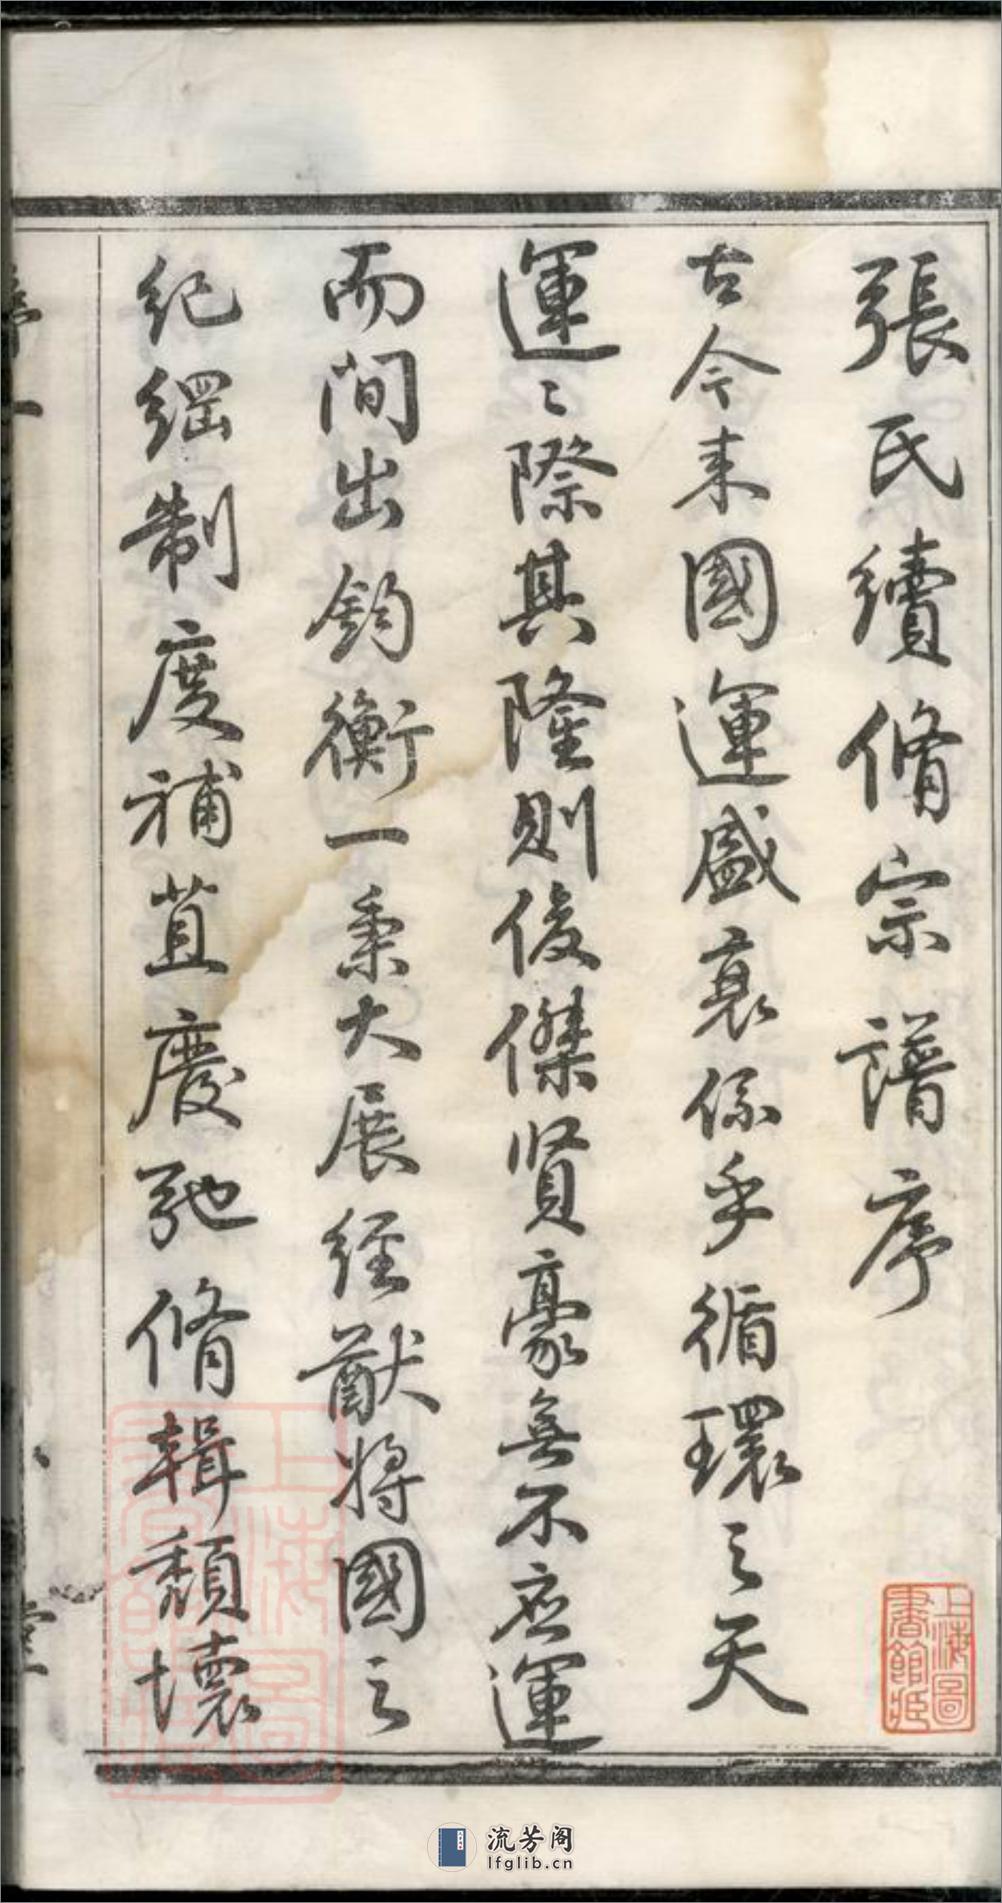 張氏續脩宗譜序
古今来國運盛衰係乎循環之天
運〻際其隆則俊傑賢豪無不應運
而間出鈞衡一秉大展經猷將國之
紀綱制度補苴廢弛脩輯頹壞
上海圖書館藏
流芳阁
lfglib.cn